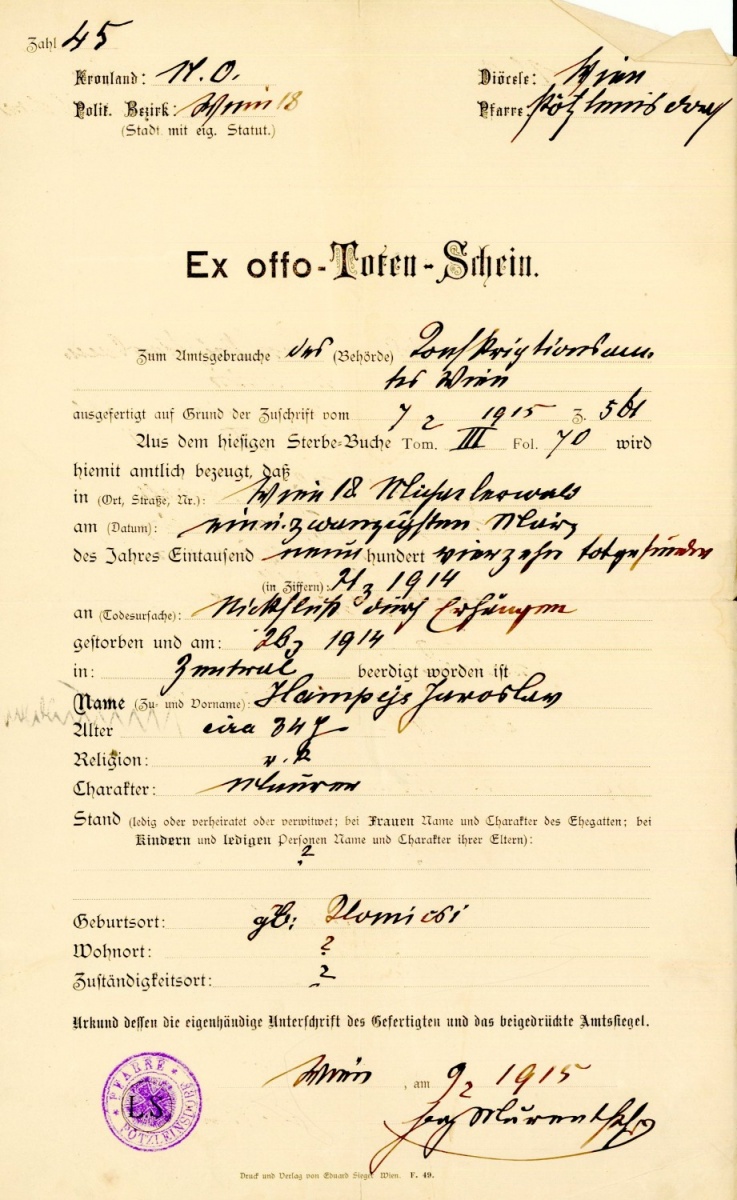 Zahl 45
Kronland: N.O. Diöcese: Wien
Polit. Bezirk: Wien 18 Pfarre: Pötzleinsdorf
(Stadt mit eig. Statut.)
Ex offo-Toten-Schein.
Zum Amtsgebrauche des (Behörde) Konskriptionsam-
tes Wien
ausgefertigt auf Grund der Zuschrift vom 7/2 1915 Z.
Aus dem hiesigen Sterbe-Buche Tom. III Fol. 70 wird
hiemit amtlich bezeugt, daß
in (Ort, Straße, Nr.): Wien 18. Michaelerwald
am (Datum): ein u. zwanzigsten März
des Jahres Eintausend neun hundert vierzehn totgefunden
(in Ziffern): 21/3 1914
an (Todesursache): durch Erhängen
gestorben und am: 26/3 1914
in: Zentral beerdigt worden ist
Name (Zu- und Vorname): Hampejs Jaroslav
Alter circa 34 J
Religion: r. k
Charakter: Maurer
Stand (ledig oder verheiratet oder verwitwet; bei Frauen Name und Charakter des Ehegatten; bei
Kindern und ledigen Personen Name und Charakter ihrer Eltern):
?
Geburtsort: gb:
Wohnort: ?
Zuständigkeitsort: ?
Urkund dessen die eigenhändige Unterschrift des Gefertigten und das beigedrückte Amtssiegel.
Wien, am 9/2 1915
PFARRE PÖTZLEINSDORF
L.S.
Druck und Verlag von Eduard Sieger Wien. F. 49.